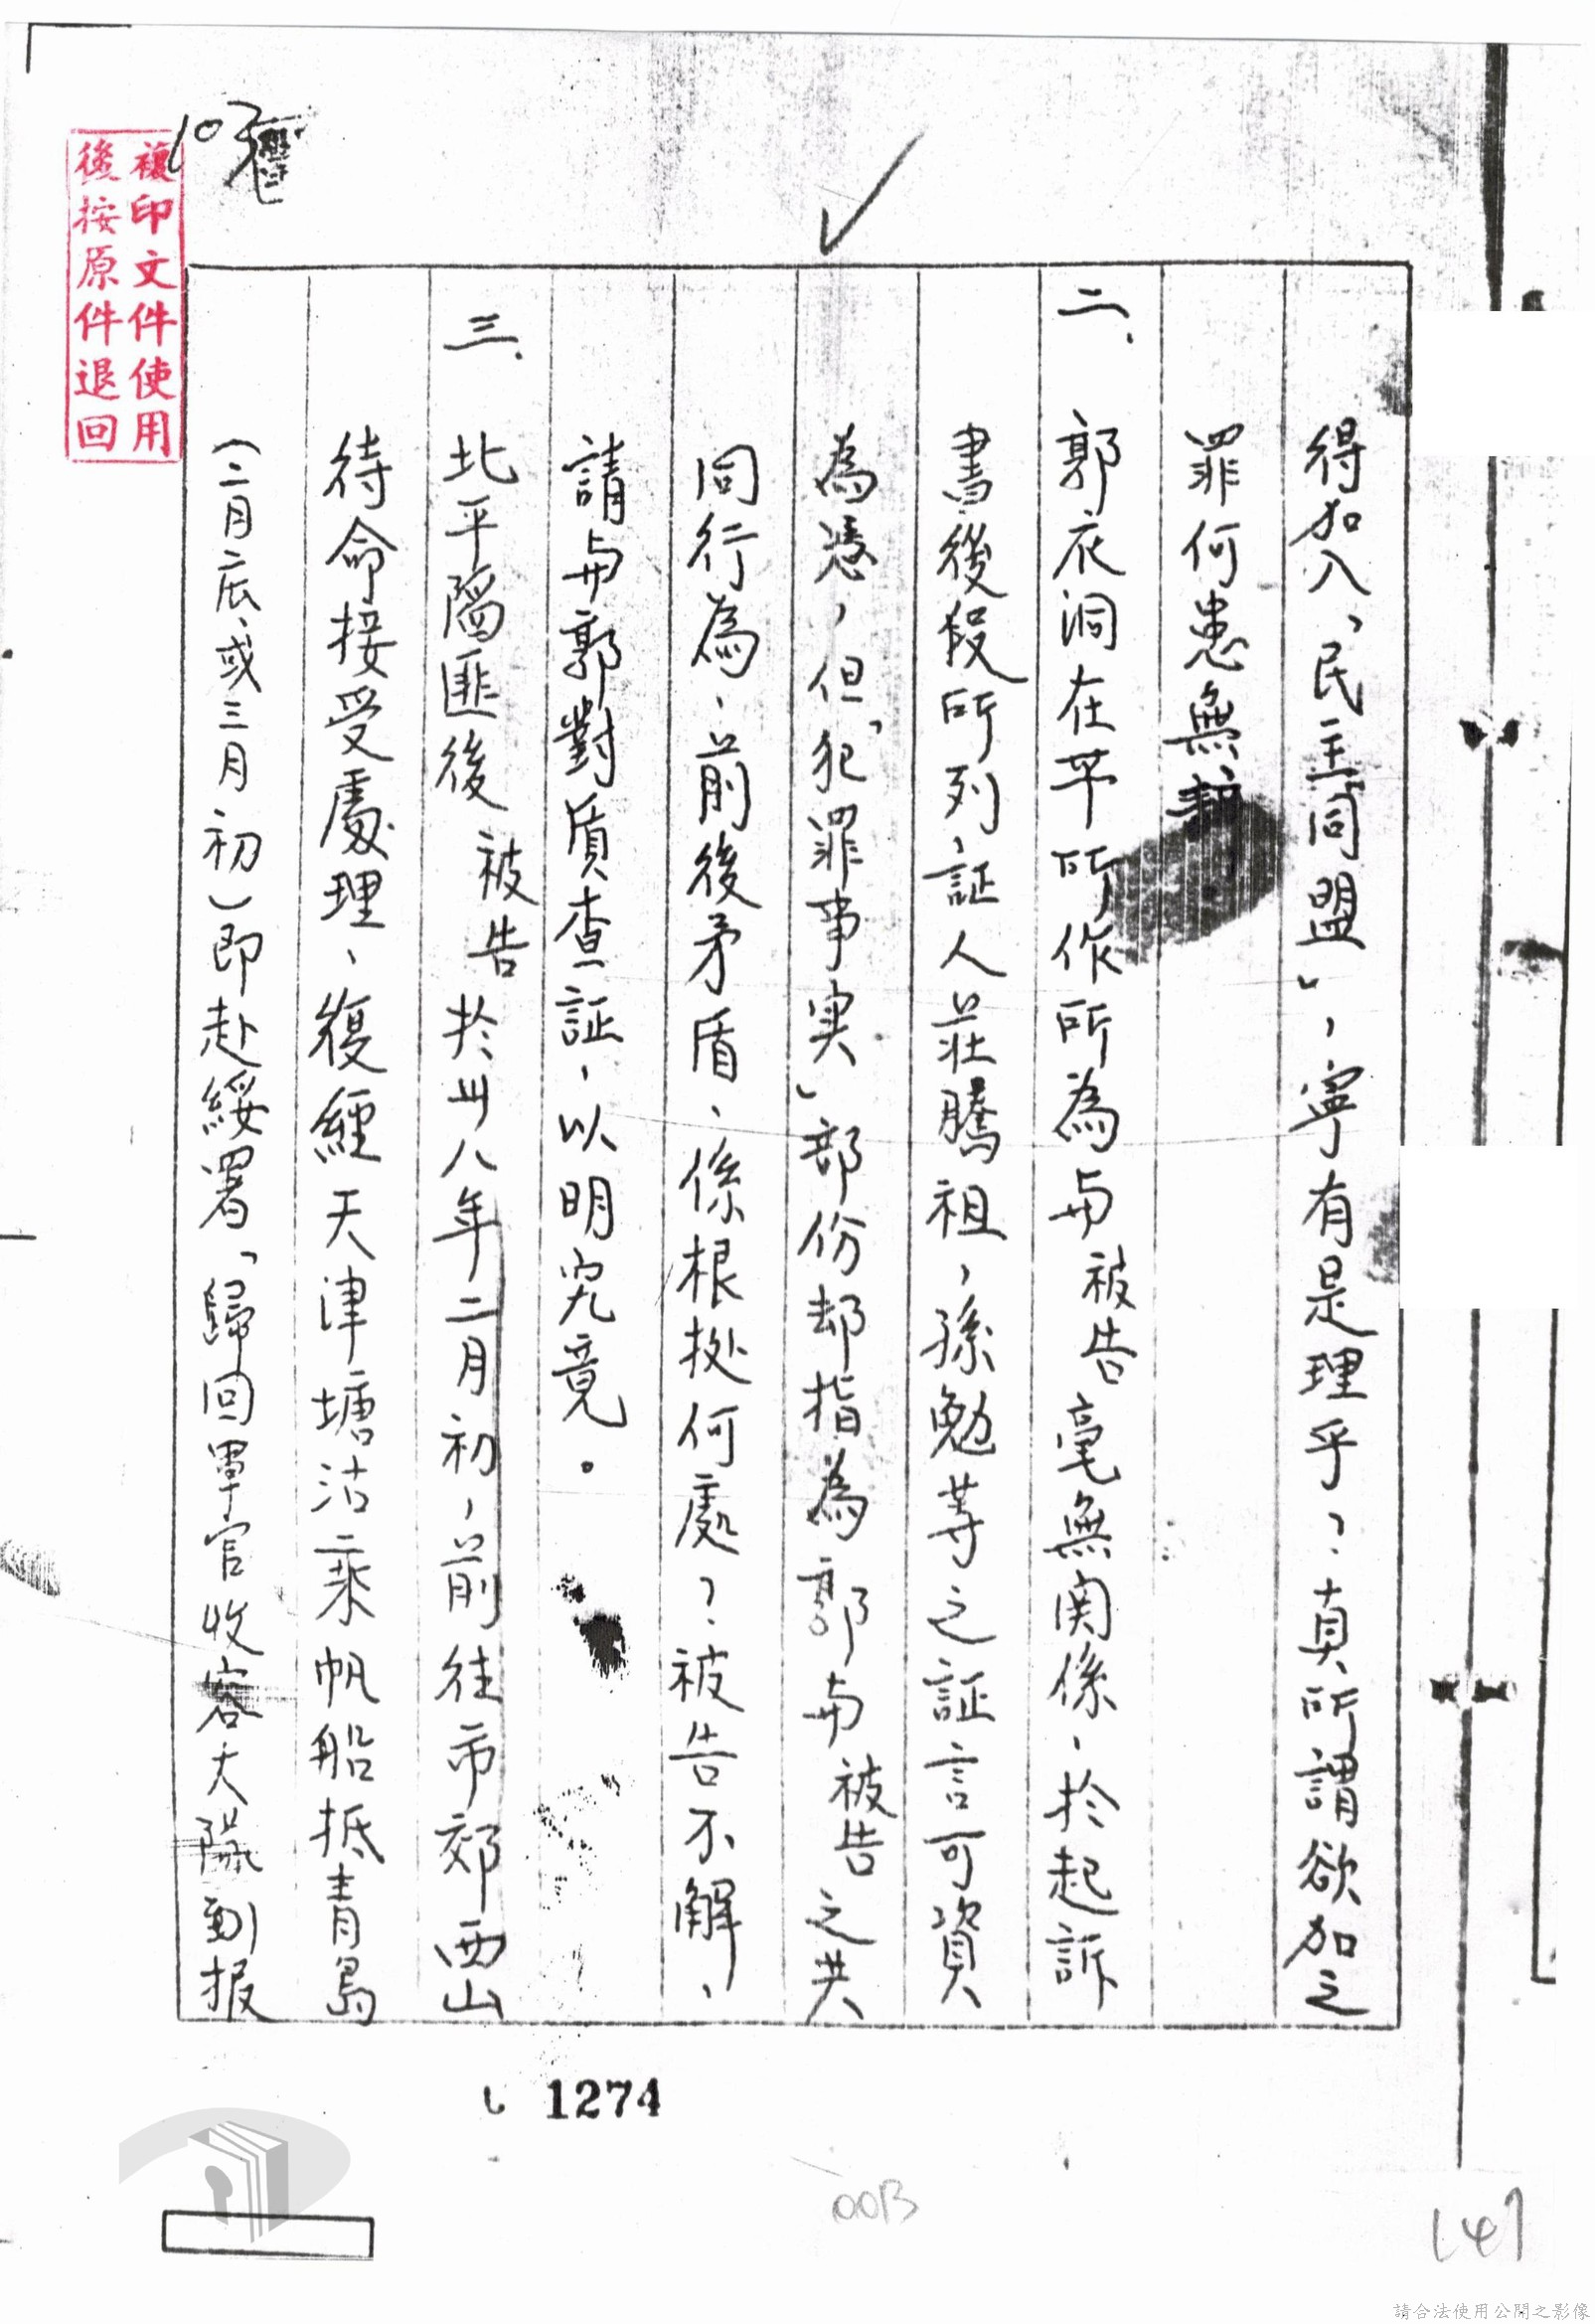 得加入「民主同盟」，寧有是理乎？真所謂欲加之
罪何患無辭
二、郭衣洞在平所作所為与被告毫無関係、於起訴
書後段所列証人莊騰祖，孫勉等之証言可資
為憑，但「犯罪事実」部份却指為郭与被告之共
同行為、前後矛盾、係根拠何處？被告不解、
請与郭對質查証、以明究竟。
三、北平陷匪後被告於卅八年二月初，前往市郊西山
待命接受處理、復經天津塘沽乘帆船抵青島
（二月底、或三月初）即赴綏署「歸回軍官收容大隊」報
複印文件使用
後按原件退回
103
1274
00B
147
請合法使用公開之影像